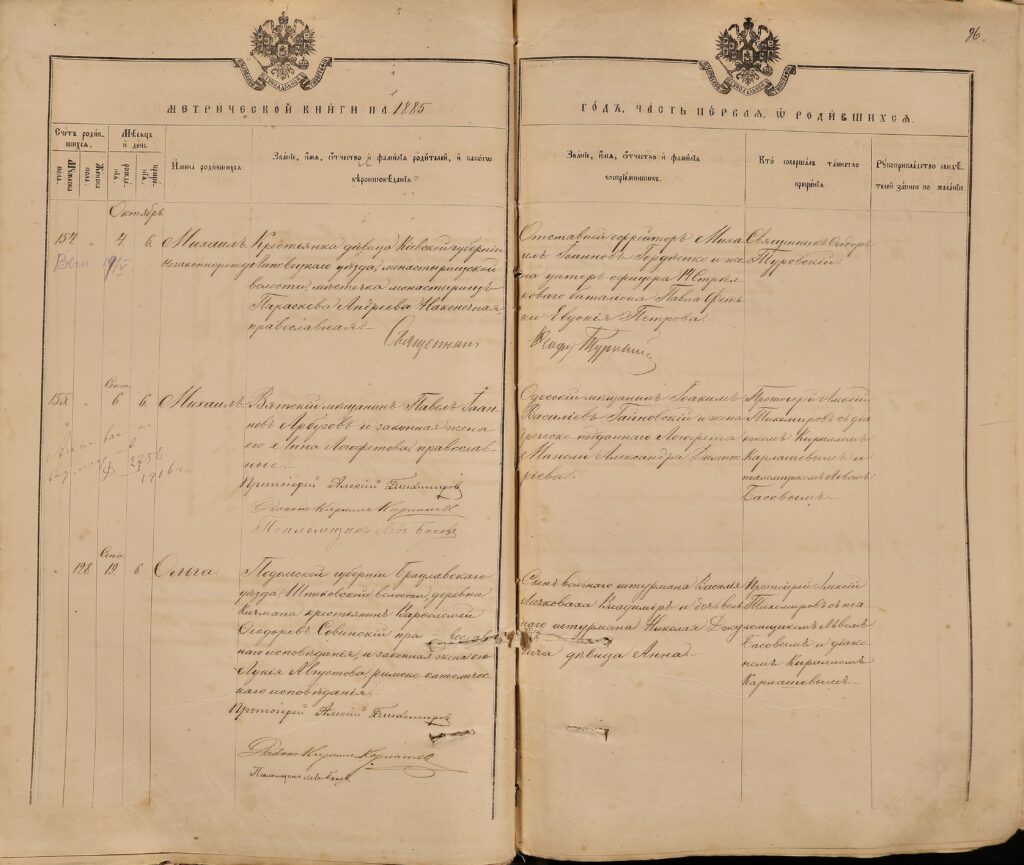 96.
МЕТРИЧЕСКОЙ КНИГИ НА 1885
ГОДЪ, ЧАСТЬ ПЕРВАЯ, Ѿ РОДИВШИХСЯ.
Счетъ родившихся.
Мужеска пола.
Женска пола.
Мѣсяцъ и день.
рожденія.
крещенія.
Имена родившихся.
Званіе, имя, отчество и фамилія родителей, и какого
вѣроисповѣданія.
Званіе, имя, отчество и фамилія
воспріемниковъ.
Кто совершалъ таинство
крещенія.
Рукоприкладство свидѣтелей записи по желанію.
Октябрь
154 " 4. 6. Михаилъ
незаконнорожд
Крестьянка дѣвица Кіевской губерніи
Липовецкаго уѣзда, монастырищской
волости, мѣстечка монастырищъ
Параскева Андреева Наконечная,
православная.
Священникъ
Отставной ефрейторъ Миха
илъ Іоанновъ Гордѣенко и же
на унтеръ офицера 14 Стрѣл
коваго баталіона Павла
Евдокія Петрова
Священникъ Ѳеодоръ
Туровскій.
Сент.
155. " 6 6. Михаилъ
Вятскій мѣщанинъ Павелъ Іоан
новъ Арбузовъ и законная жена
его Анна православ
ные.
Протоіерей Алексій Тихомировъ
Діаконъ Кириллъ Карташевъ
Псаломщикъ Левъ Басовъ
2756.
1916 г.
Одесскій мѣщанинъ Іоакимъ
Василіевъ Гайновскій и жена
греческо подданнаго
Маноли Александра Димит
ріева.
Протоіерей Алексій
Тихомировъ съ діа
кономъ Кирилломъ
Карташевымъ и
псаломщикомъ Львомъ
Басовымъ.
Сент.
" 128 19. 6 Ольга.
Подольской губерніи Брацлавскаго
уѣзда, Шпиковской волости, деревни
Кичмана крестьянинъ Варѳоломей
Ѳеодоровъ Совинскій пра
наго исповѣданія, и законная жена его
Лукія Августова римско-католичес
каго исповѣданія
Протоіерей Алексій Тихомировъ
Діаконъ Кириллъ Карташевъ
Псаломщикъ Левъ Басовъ
Сынъ вольнаго штурмана Василія
Личковаха Владиміръ и дочь воль
наго штурмана Николая
дѣвица Анна
Протоіерей Алексій
Тихомировъ съ пса
ломщикомъ Львомъ
Басовымъ и діако
номъ Кирилломъ
Карташевымъ